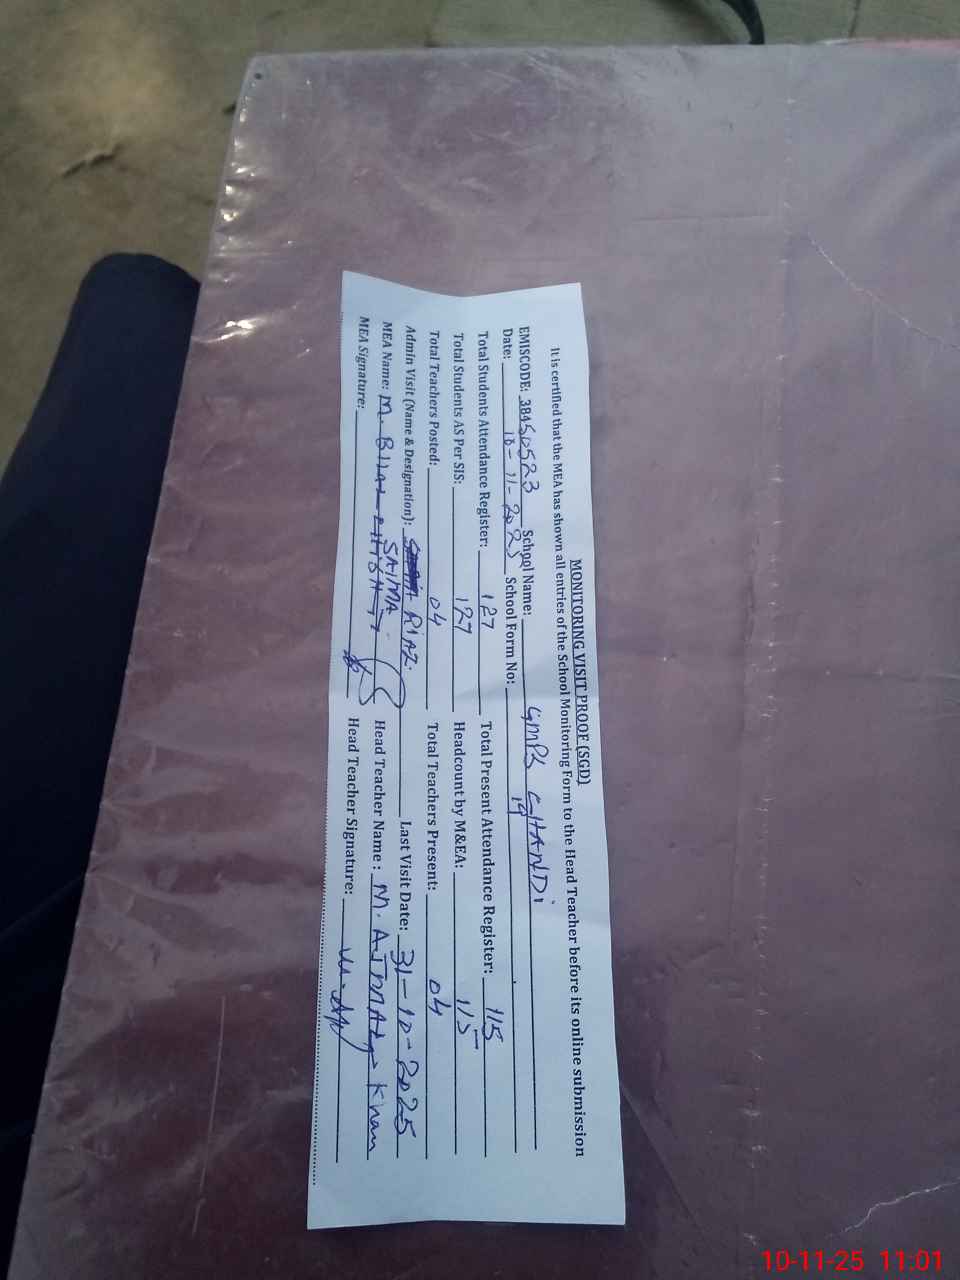 MONITORING VISIT PROOF (SGD)
It is certified that the MEA has shown all entries of the School Monitoring Form to the Head Teacher before its online submission
EMISCODE: 38450523 School Name: GMPS CHANDi
Date: 10-11-2025 School Form No: 19
Total Students Attendance Register: 127 Total Present Attendance Register: 115
Total Students AS Per SIS: 127 Headcount by M&EA: 115
Total Teachers Posted: 04 Total Teachers Present: 04
Admin Visit (Name & Designation): SAIMA RIAZ. Last Visit Date: 31-10-2025
MEA Name: M. BILAL Head Teacher Name : M. AJMAL Khan
MEA Signature: Head Teacher Signature:
10-11-25 11:01